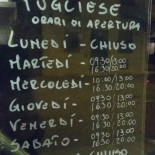 PUGLIESE
ORARI DI APERTURA
LUNEDÍ - CHIUSO
MARTEDÍ - 09:30/13:00
16:30/20:00
MERCOLEDÍ - 10:00/13:00
16:30/20:00
GIOVEDÍ - 09:30/13:00
16:30/20:00
VENERDÍ - 09:30/13:00
16:30/20:00
SABATO - 09:30/13:00
16:30/20:00
CHIUSO